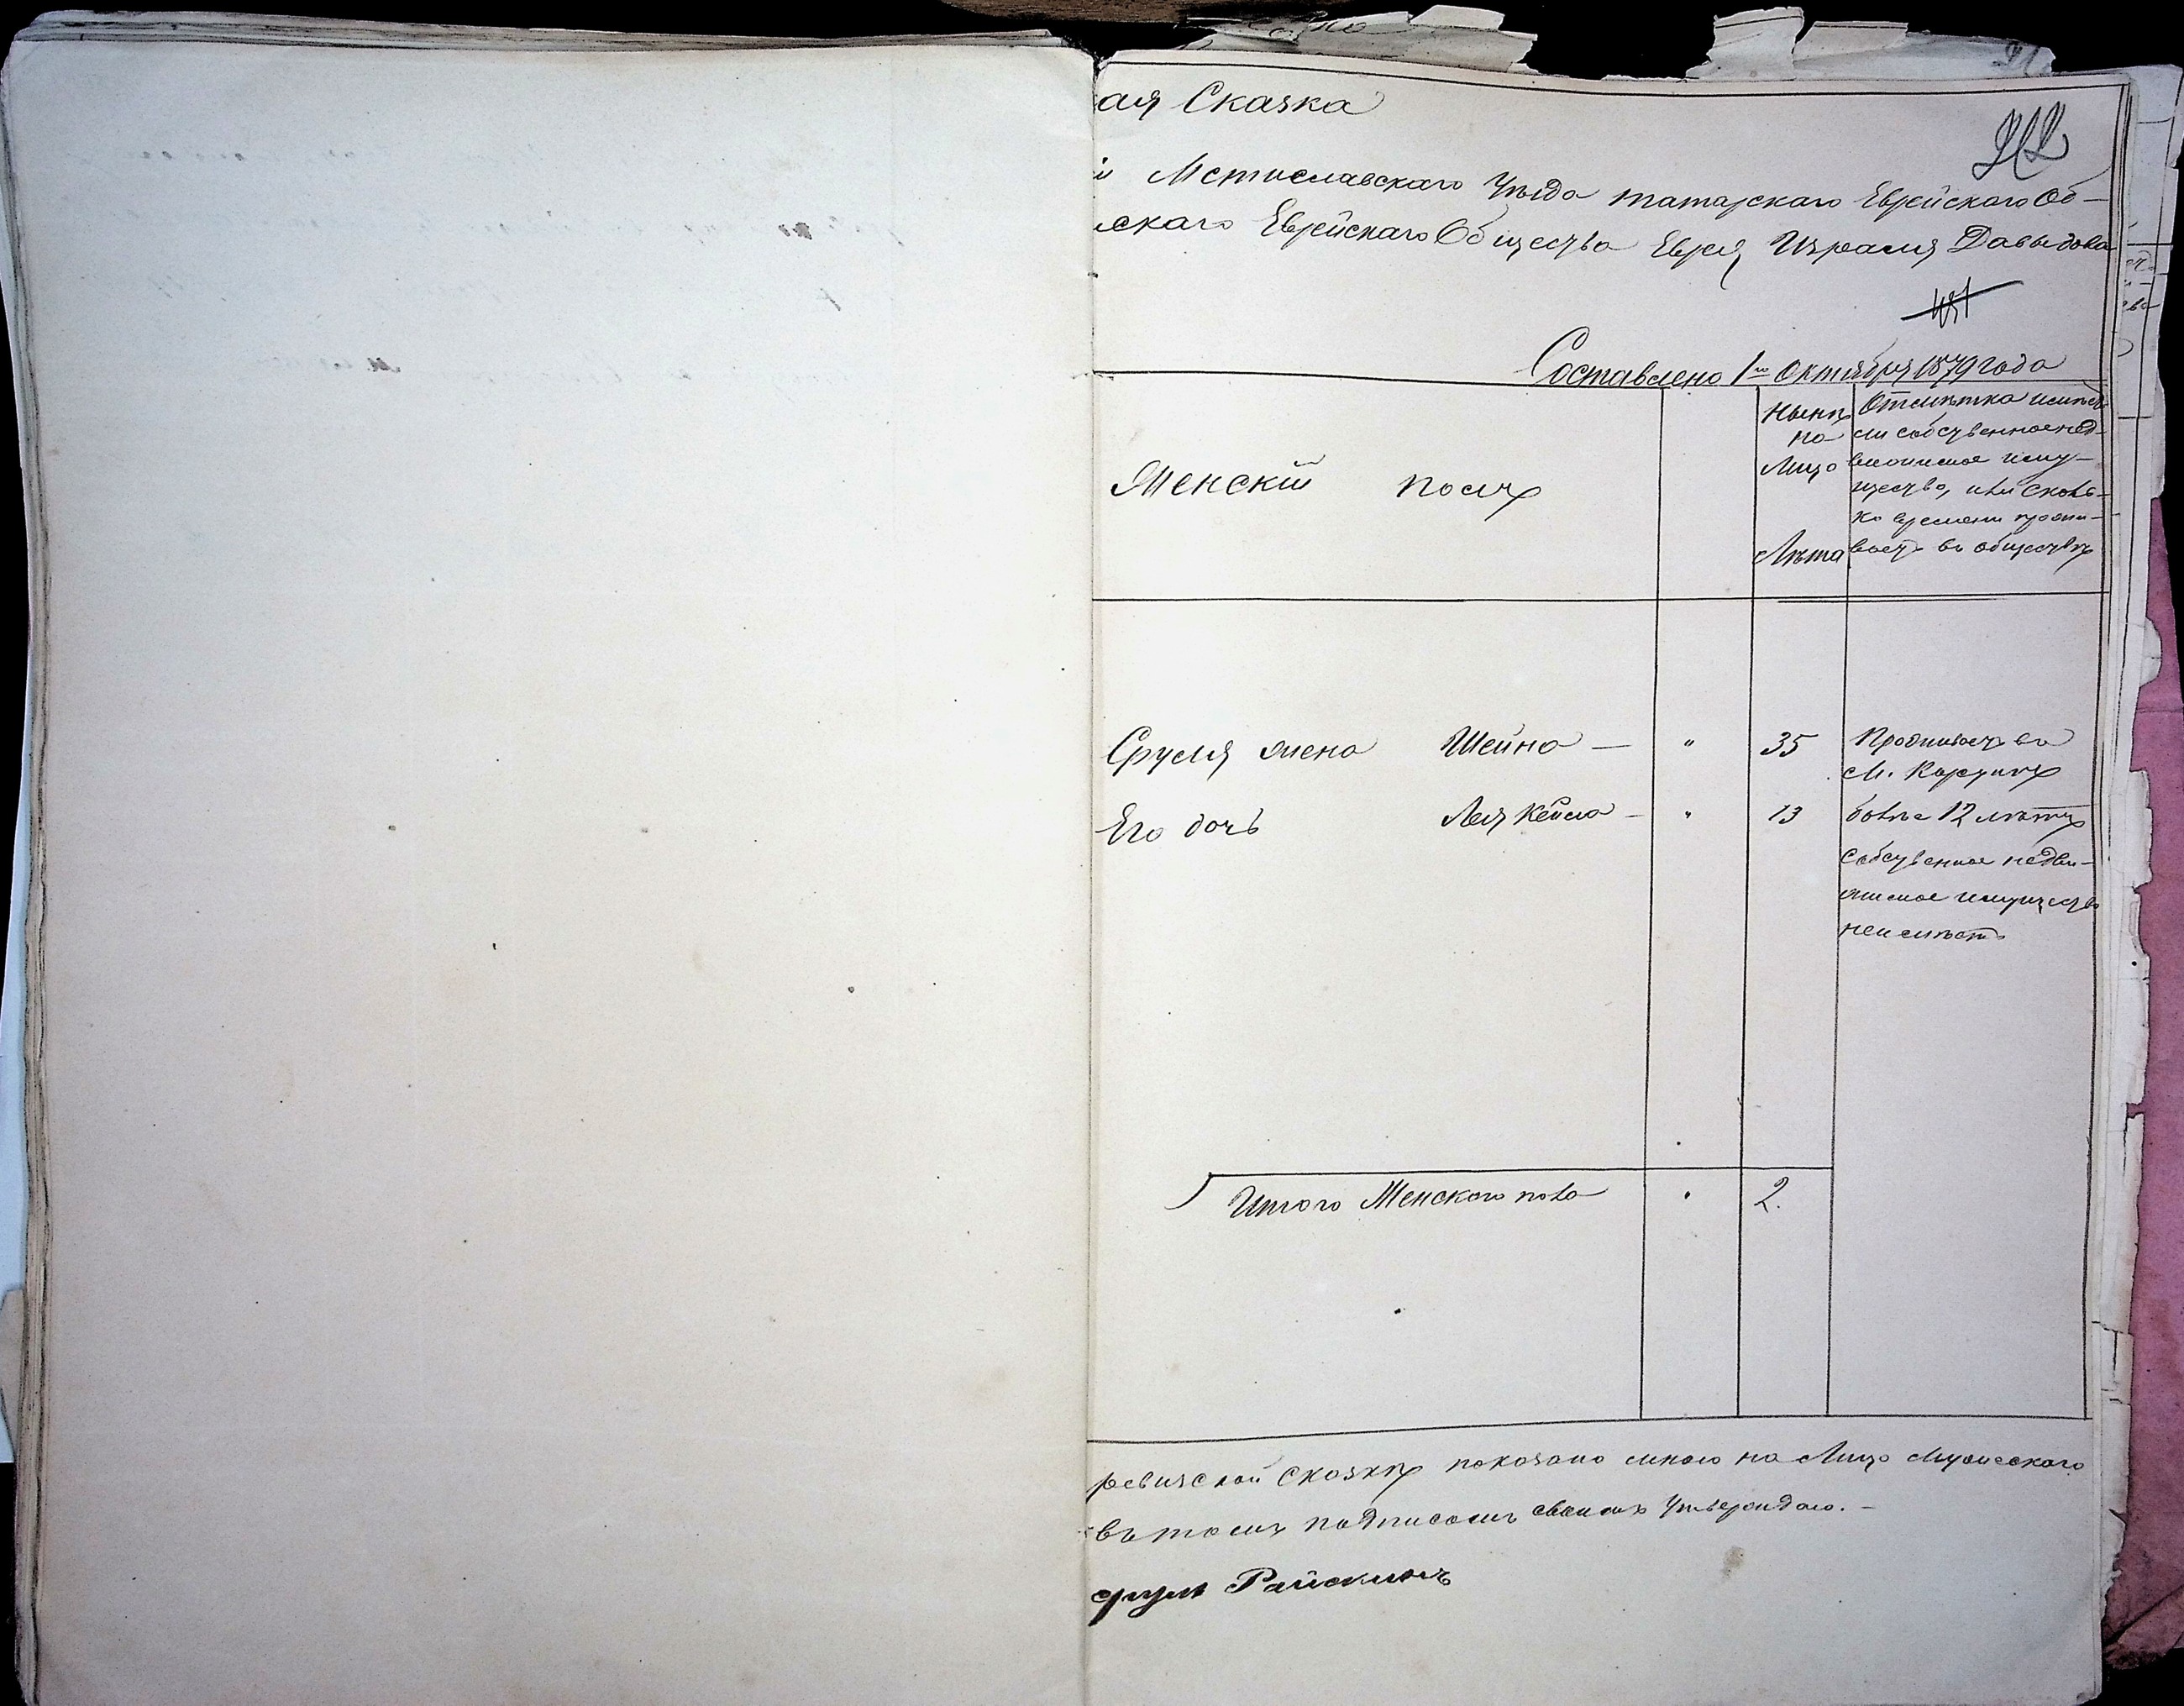 ая Сказка
й Мстиславскаго Уѣзда татарскаго Еврейскаго Об-
скаго Еврейскаго Общества Еврея Израиля Давыдова
Составлено 1го Октября 1879 года
Женскій полъ
Нынѣ
на
Лицо
Лѣта
Отмѣтка имѣетъ
ли собственное нед-
вижимое иму-
щество, или сколь-
ко времени прожи-
ваетъ въ обществѣ
Сруля жена Шейна — " 35 Проживаетъ въ
М.
Его дочь Лея Кейла — " 13 болѣе 12 лѣтъ
Собственное недви-
жимое имущество
неимѣетъ
Итого Женскаго пола " 2.
ревизской сказкѣ показано мною на Лицо Мужескаго
въ томъ подписомъ своимъ Утверждаю. —
сруль Райскинъ